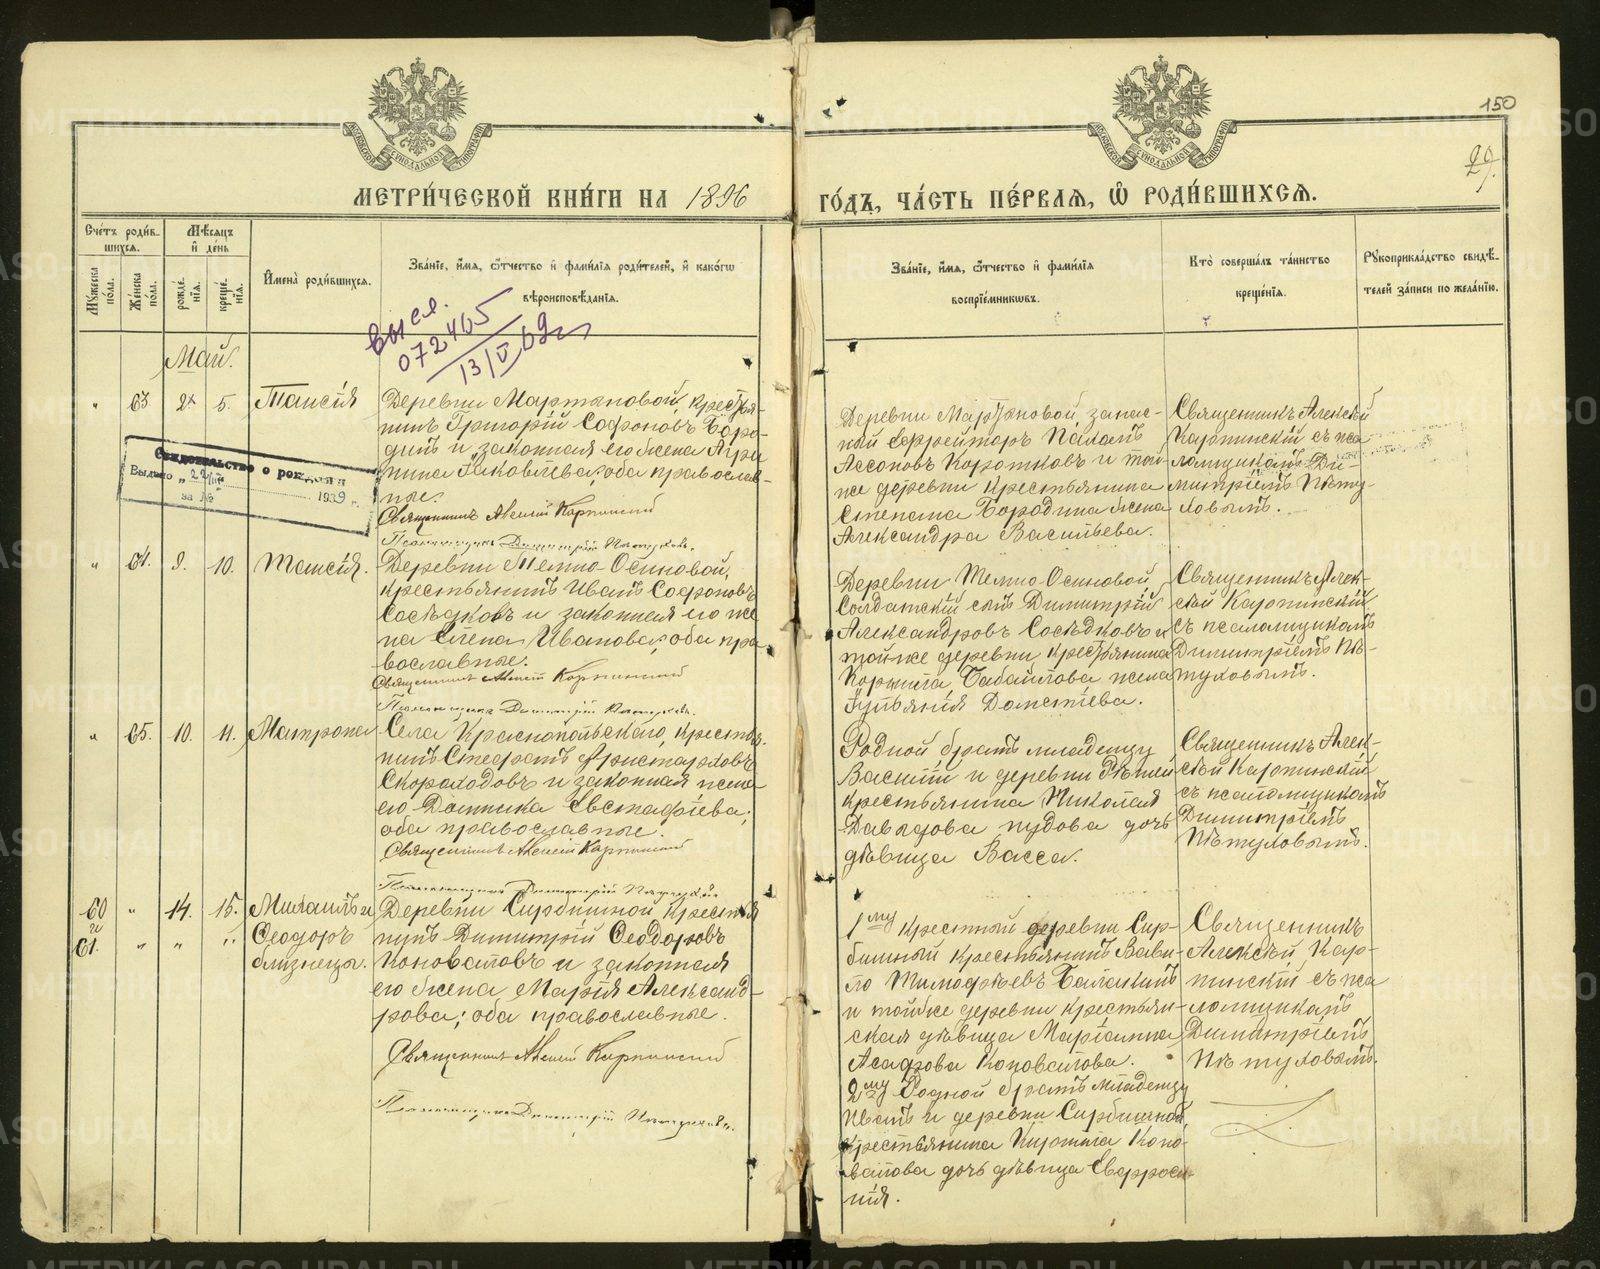 150
29.
МЕТРИ́ЧЕСКОЙ КНИ́ГИ НА 1896
ГО́ДЪ, ЧА́СТЬ ПЕ́РВАЯ, Ѽ РОДИ́ВШИХСЯ.
Сче́тъ роди́в-
шихся.
Мѣ́сяцъ
и҆ де́нь
Мꙋ́жеска
по́ла.
Же́нска
по́ла.
рожде́-
нїя.
креще́-
нїя.
И҆мена̀ роди́вшихся.
Зва́нїе, и҆́мя, ѻ҆́тчество и҆ фами́лїя роди́телей, и҆ како́гѡ
вѣроисповѣ́данїя.
Зва́нїе, и҆́мя, ѻ҆́тчество и҆ фами́лїя
воспрїе́мникѡвъ.
Кто̀ соверша́лъ та́инство
креще́нїя.
Рꙋкоприкла́дство свидѣ́-
телей за́писи по жела́нїю.
высл.
072465
13/V 69г
Май.
" 63. 2 5. Таисія
Деревни Мартяновой, кресть-
янинъ Григорій Софоновъ Боро-
динъ и законная его жена Агри-
пина Іаковлева; оба православ-
ные.
Священникъ Алексій Карпинскій
Псаломщикъ Димитрій Пѣтуховъ.
Деревни Мартяновой запас-
ный ефрейторъ
Ассоновъ Коротковъ и той-
же деревни крестьянина
Стефана Бородина жена
Александра Васильева.
Священникъ Алексѣй
Карпинскій съ пса-
ломщикомъ Ди-
митріемъ Пѣту-
ховымъ.
Свидѣтельство о рождении
Выдано „22/III
за № 1939 г.
" 64. 9. 10. Таисія.
Деревни Темно Осиновой,
крестьянинъ Иванъ Софоновъ
Сосѣдковъ и законная его же
на Елена Иванова; оба пра
вославные.
Священникъ Алексій Карпинскій
Псаломщикъ Димитрій Пѣтуховъ.
Деревни Темно Осиновой,
Солдатскій сынъ Димитрій
Александровъ Сосѣдковъ и
той же деревни, крестьянина
Корнила Бабайлова жена
Іуліанія Дометіева.
Священникъ Алек-
сѣй Карпинскій
съ псаломщикомъ
Димитріемъ Пѣ-
туховымъ.
" 65. 10. 11. Матрона
Села Краснопольскаго, крестья-
нинъ Стефанъ Аристарховъ
Скороходовъ и законная жена
его Домника Евстафіева;
оба православные.
Священникъ Алексій Карпинскій
Псаломщикъ Димитрій Пѣтуховъ.
Родной братъ младенцу
Василій и деревни
крестьянина Николая
Давыдова пудова дочь
дѣвица Васса.
Священникъ Алек-
сѣй Карпинскій
съ псаломщикомъ
Димитріемъ
Пѣтуховымъ.
60 " 14. 15. Михаилъ и
и
61. " " " Ѳеодоръ
близнецы.
Деревни Сирбишной крестья
нинъ Димитрій Ѳеодоровъ
Коноваловъ и законная
его жена Марія Александ-
рова; оба православные.
Священникъ Алексій Карпинскій
Псаломщикъ Димитрій Пѣтуховъ.
1му крестный деревни Сир-
бишной крестьянинъ Вави-
ло Тимофѣевъ Балакинъ
и той же деревни крестьян-
ская дѣвица Маріанна
Асафова Коновалова.
2му Родной братъ младенцу
Иванъ и деревни Сирбишной,
крестьянина Кирилла Коно-
валова дочь дѣвица Евфроси-
нія.
Священникъ
Алексѣй Кар-
пинскій съ пса
ломщикомъ
Димитріемъ
Пѣтуховымъ.